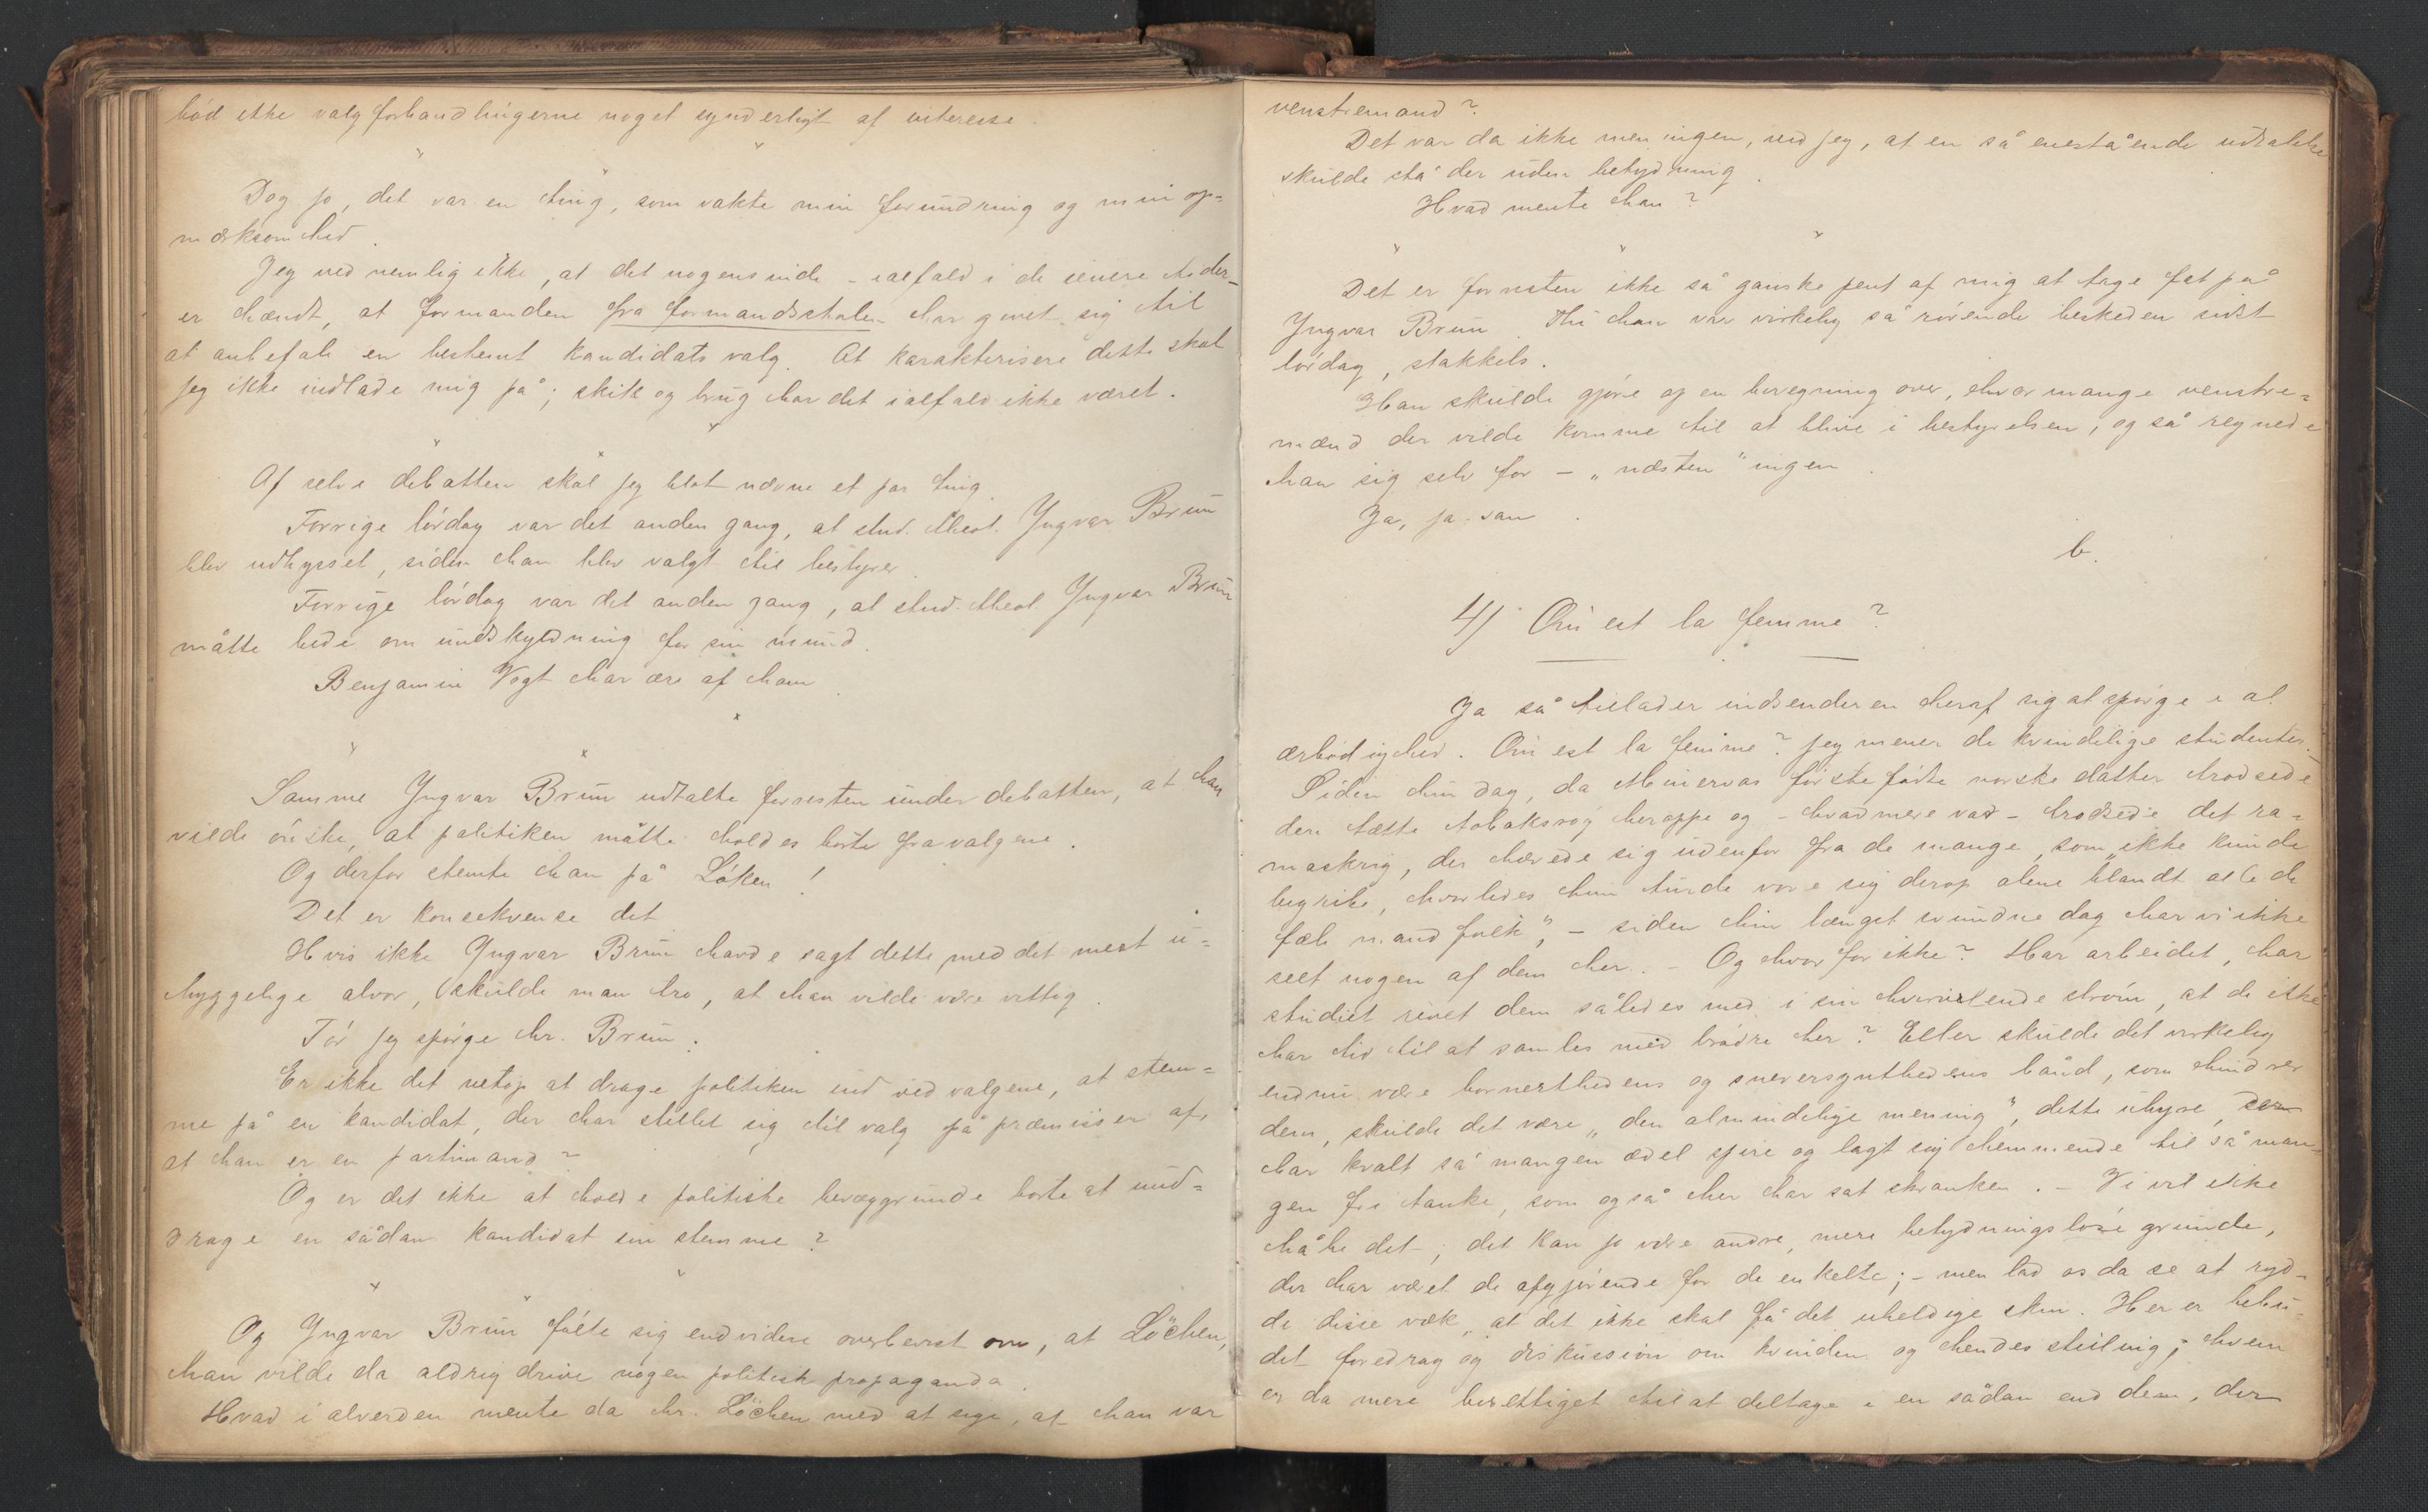 bød ikke valgforhandlingerne noget synderligt af interesse.
Dog jo, det var en ting, som vakte min forundring og min op=
mærksomhed.
Jeg ved nemlig ikke, at det nogensinde - ialfald i de senere tider -
er hændt, at formanden fra formandsstolen har givet sig til
at anbefale en bestemt kandidats valg. At karakterisere dette skal
jeg ikke indlade mig på; skik og brug har det ialfald ikke været.
Af selve debatten skal jeg blot nævne et par ting.
Forrige lørdag var det anden gang, at stud. theol. Yngvar Brun
blev udhysset, siden han blev valgt til bestyrer.
Forrige lørdag var det anden gang, at stud. theol. Yngvar Brun
måtte bede om undskyldning for sin mund.
Benjamin Vogt har ære af ham.
Samme Yngvar Brun udtalte forresten under debatten, at han
vilde ønske, at politiken måtte holdes borte fra valgene.
Og derfor stemte han på Løken!
Det er konsekvense det.
Hvis ikke Yngvar Brun havde sagt dette med det mest u=
hyggelige alvor, skulde man tro, at han vilde være vittig.
Tør jeg spørge hr. Brun:
Er ikke det netop at drage politiken ind ved valgene, at stem=
me på en kandidat, der har stillet sig til valg på præmisser af,
at han er en partimand?
Og er det ikke at holde politiske bevæggrunde borte at und=
drage en sådan kandidat sin stemme?
Og Yngvar Brun følte sig endvidere overbevist om, at Löchen,
han vilde da aldrig drive nogen politisk propaganda.
Hvad i alverden mente da hr. Löchen med at sige, at han var
venstremand?
Det var da ikke meningen, ved jeg, at en så enestående udtalelse
skulde stå der uden betydning.
Hvad mente han?
Det er forresten ikke så ganske pent af mig at tage fat på
Yngvar Brun. Thi han var virkelig så rørende beskeden sidst
lørdag, stakkels.
Han skulde gjøre op en beregning over, hvor mange venstre=
mænd der vilde komme til at blive i bestyrelsen, og så regnede
han sig selv for - „næsten" ingen.
Ja, ja san.
b.
4) Où est la femme?
Ja så tillader indsenderen heraf sig at spørge i al
ærbødighed. Où est la femme? Jeg mener de kvindelige studenter.
Siden hin dag, da Minervas første fødte norske datter trodsede
den tætte tobaksrøg heroppe og - hvad mere var - trodsede det ra=
maskrig, der hævede sig udenfor fra de mange, som „ikke kunde
begribe, hvorledes hun turde vove sig derop alene blandt alle de
fæle mandfolk", - siden hin længst svundne dag har vi ikke
seet nogen af dem her. - Og hvorfor ikke? Har arbeidet, har
studiet revet dem således med i sin hvirvlende strøm, at de ikke
har tid til at samles med brødre her? Eller skulde det virkelig
endnu være bornerthedens og sneversynthedens bånd, som hindrer
dem, skulde det være „den almindelige mening", dette uhyre, der
har kvalt så mangen ædel spire og lagt sig hemmende til så man=
gen fri tanke, som også her har sat skranken. - Vi vil ikke
håbe det -; det kan jo være andre, mere betydningsløse grunde,
der har været de afgjørende for de enkelte; - men lad os da se at ryd=
de disse væk, at det ikke skal få det uheldige skin. Her er bebu=
det foredrag og diskussion om kvinden og hendes stilling; hvem
er da mere berettiget til at deltage i en sådan end dem, der